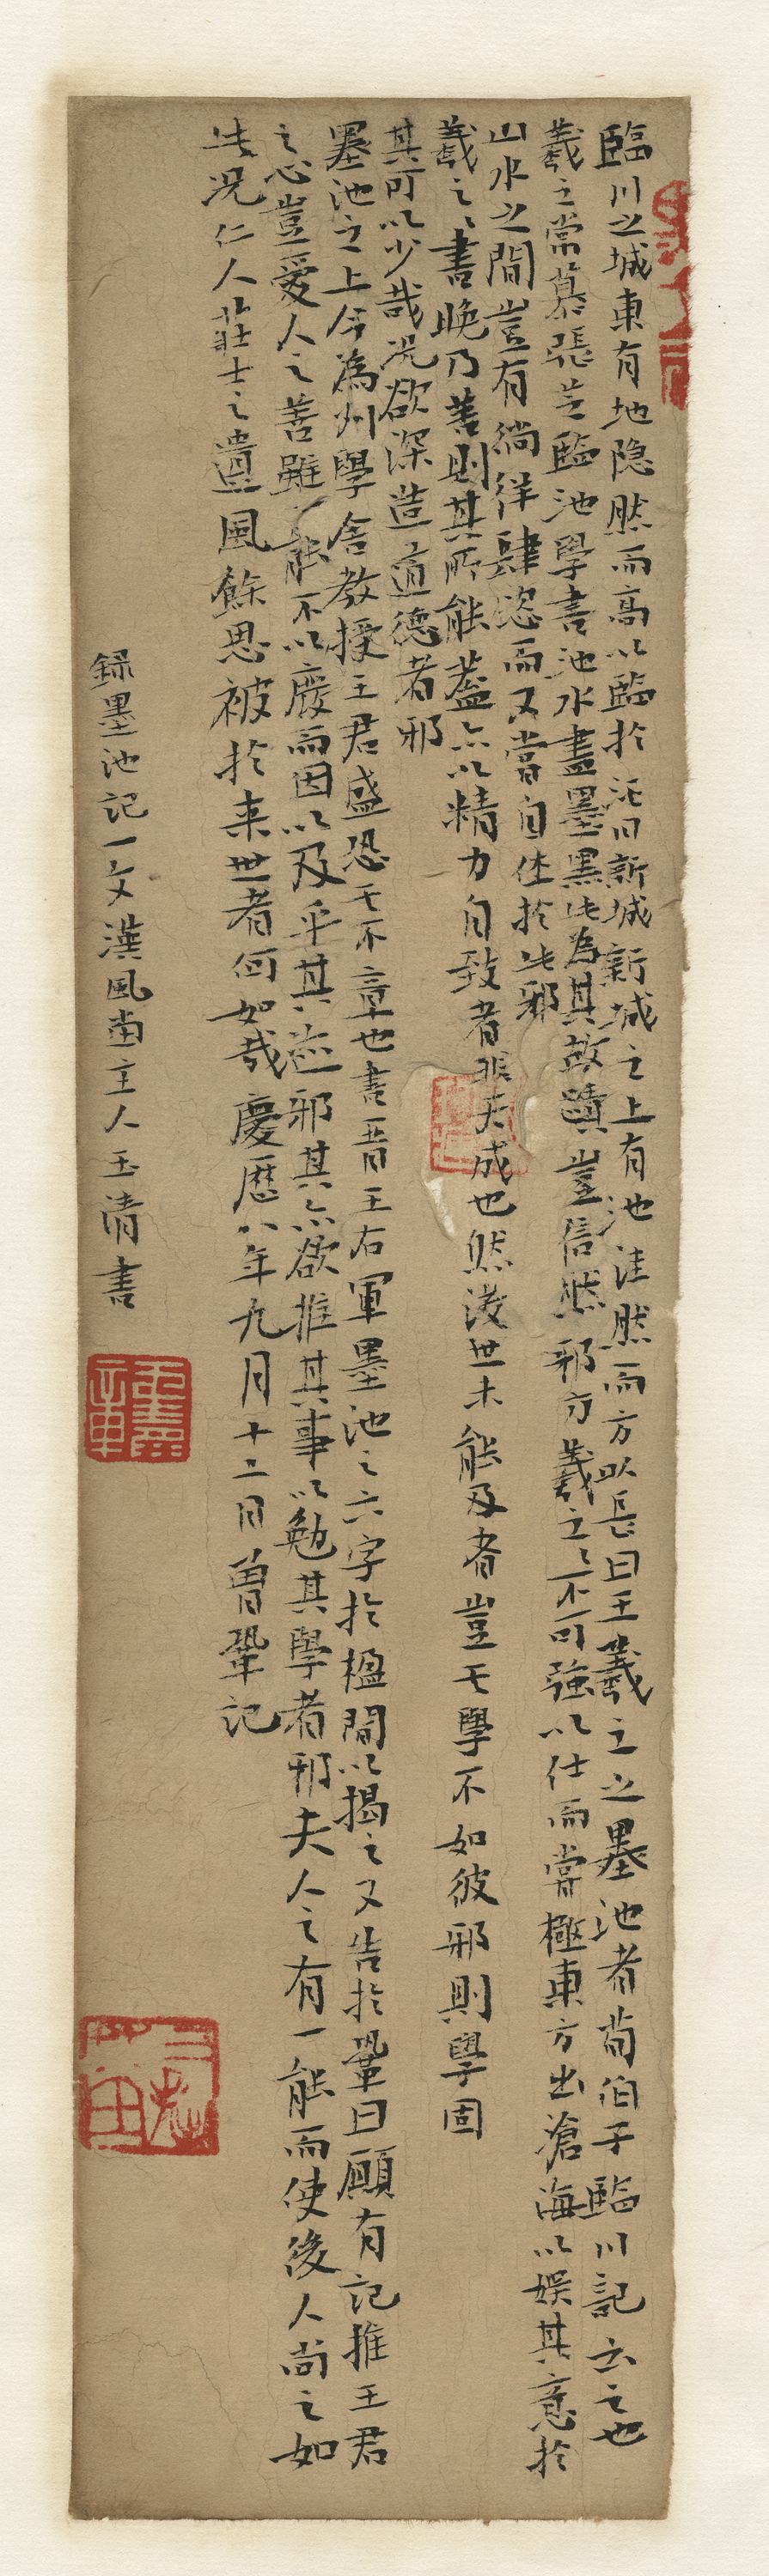 臨川之城東有地隐然而高以臨於汪曰新城新城之上有池洼然而方以長曰王羲之之墨池者荀伯子臨川記云之也
羲之常慕張芝臨池學書池水盡墨黑此為其故蹟豈信然邪方羲之之不可強以仕而嘗極東方出滄海以娱其意於
山水之間豈有徜徉肆恣而又嘗自休於此邪
羲之之書晚乃善則其所能蓋亦以精力自致者非天成也然後世未能及者豈无學不如彼邪則學固
其可以少哉况欲深造道德者邪
墨池之上今為州學舍教授王君盛恐其不章也書晋王右軍墨池之六字於楹間以揭之又告於鞏曰願有記推王君
之心豈愛人之善雖一能不以廢而因以及乎其迹邪其亦欲推其事以勉其學者邪夫人之有一能而使後人尚之如
此况仁人莊士之遺風餘思被於来世者何如哉慶歷八年九月十二日曾鞏記
録墨池記一文漢風堂主人玉清書